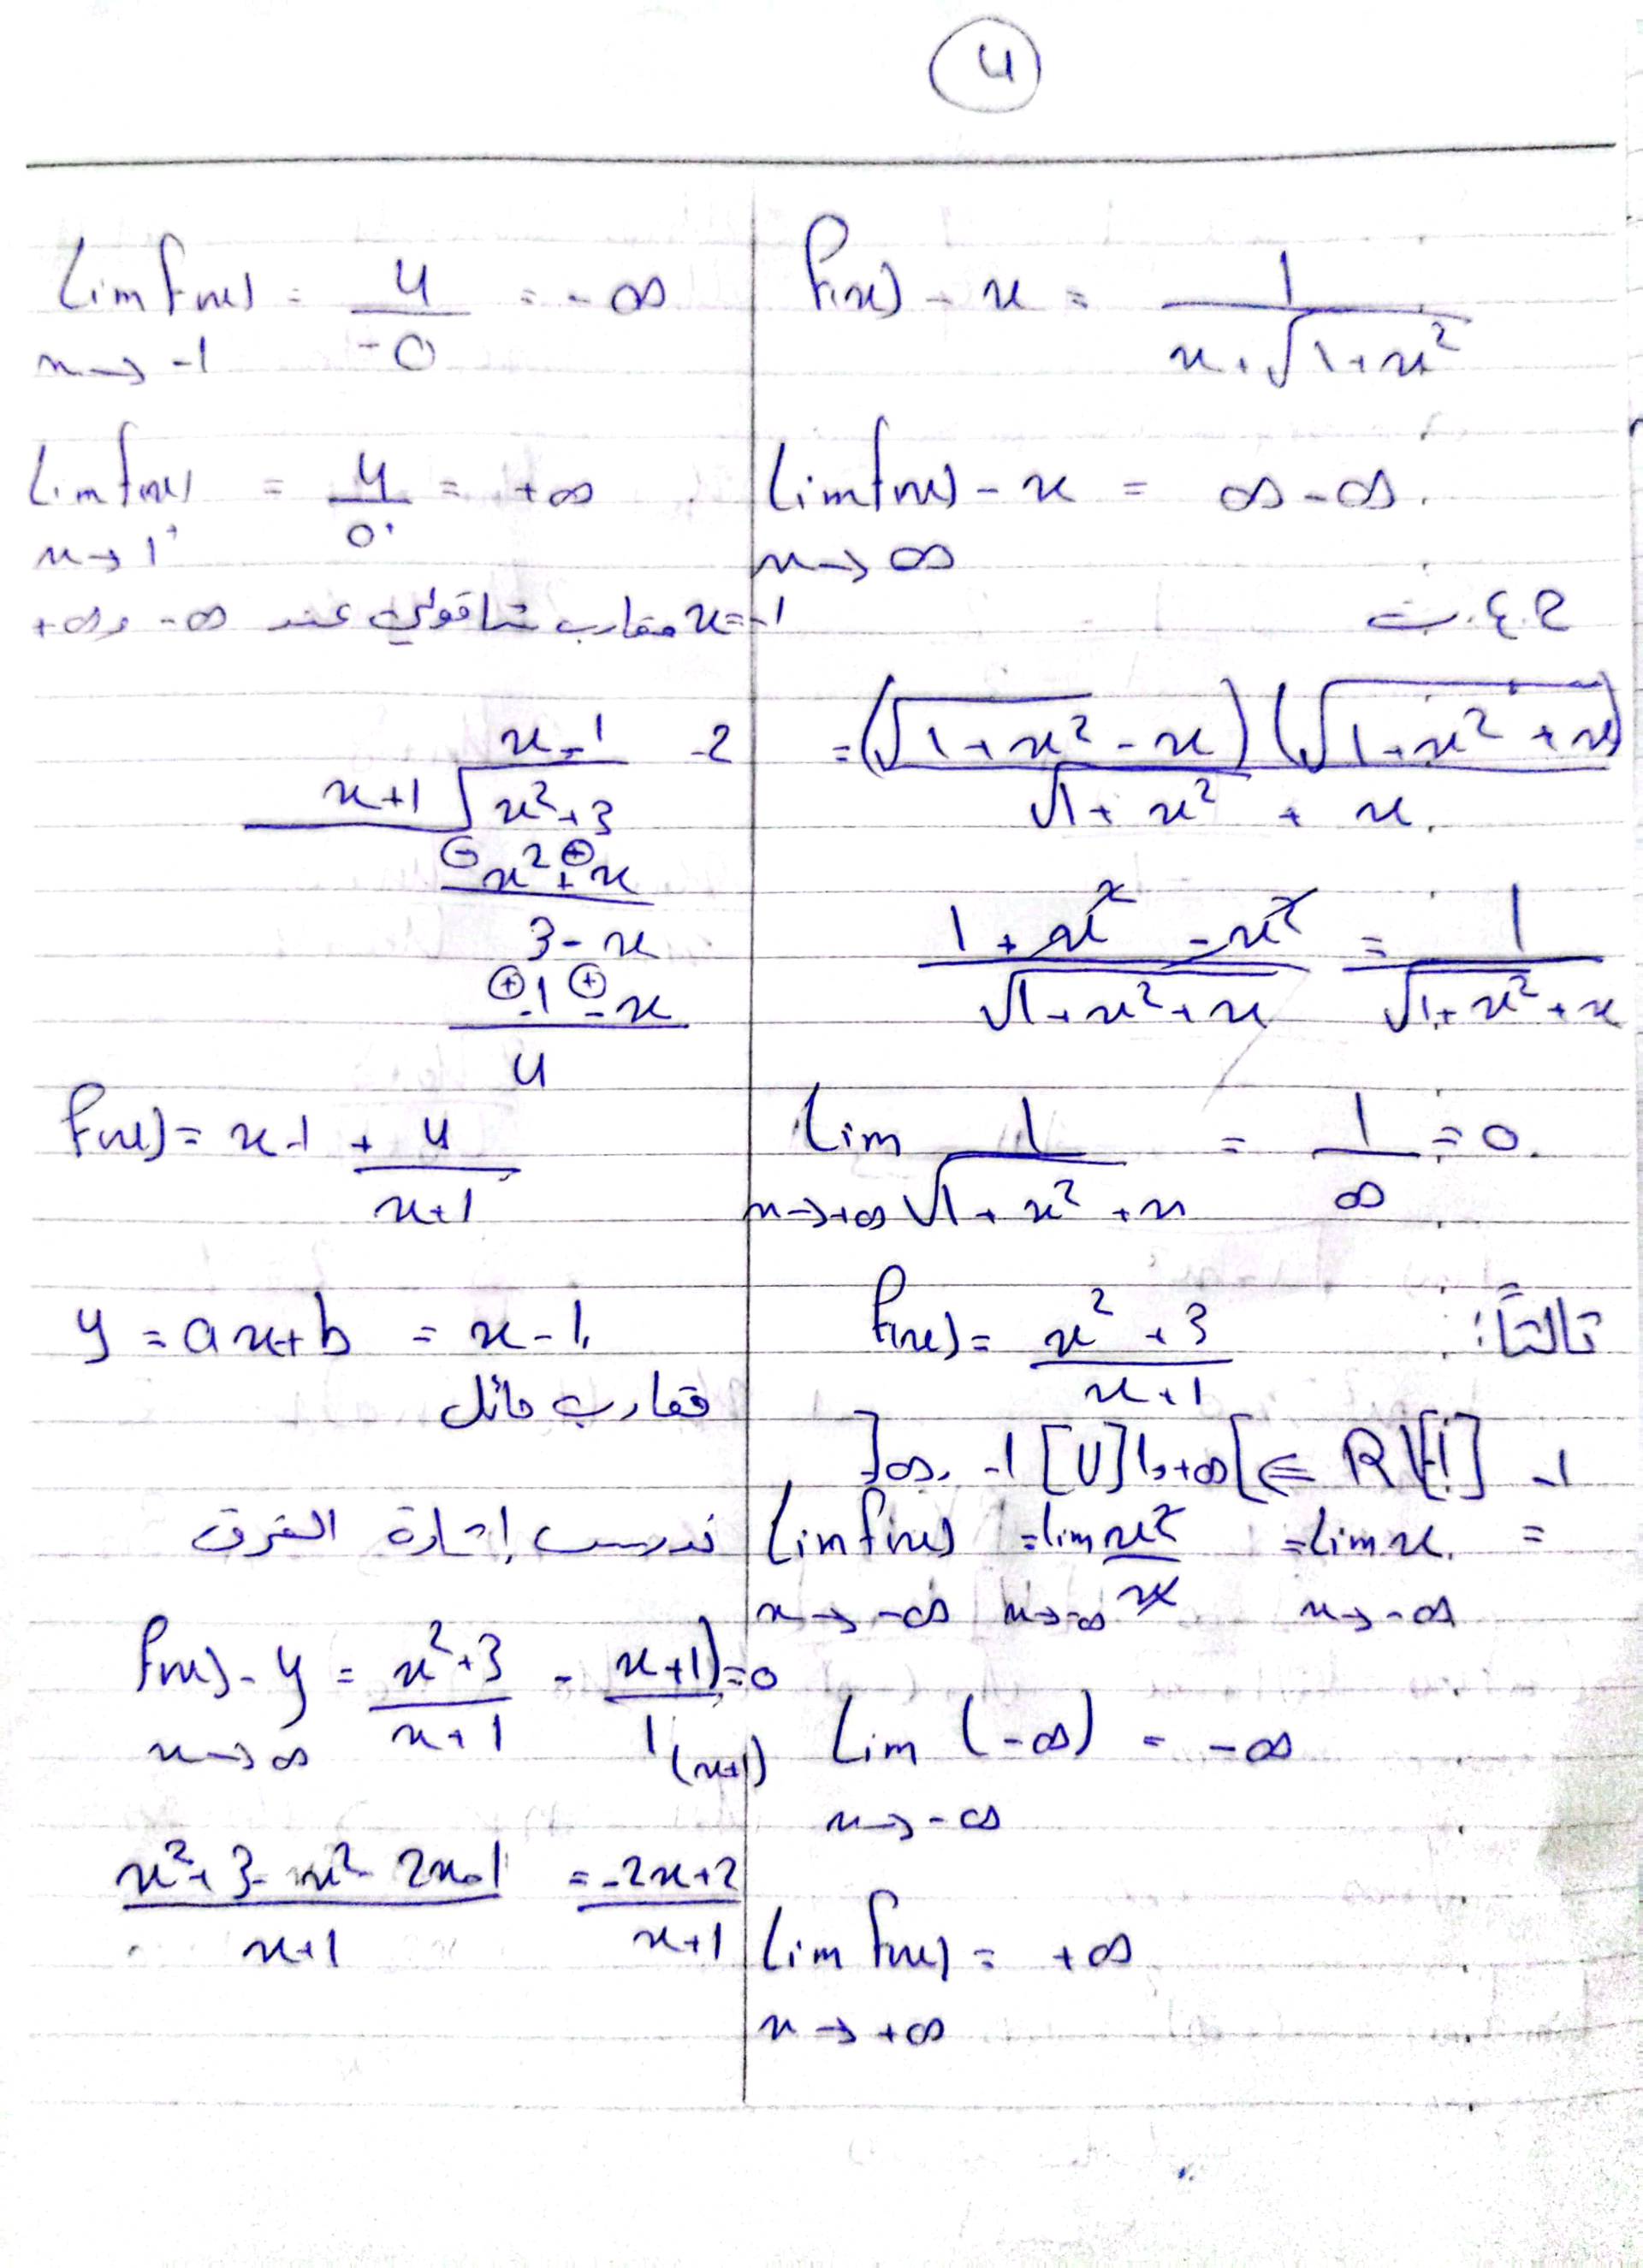 4
f(x) - x = 1 / (x + √(1+x²))
lim f(x) - x = ∞ - ∞
x → ∞
ح.ع.ت
= (√(1+x²) - x)(√(1+x²) + x) / (√(1+x²) + x)
(1 + x² - x²) / (√(1+x²) + x) = 1 / (√(1+x²) + x)
lim 1 / (√(1+x²) + x) = 1/∞ = 0
x → +∞
ثالثاً: f(x) = (x² + 3) / (x+1)
1- R\{-1} ⇐ ]-∞, -1[ U ]1, +∞[
lim f(x) = lim x²/x = lim x =
x → -∞ x → -∞ x → -∞
lim (-∞) = -∞
x → -∞
lim f(x) = +∞
x → +∞
lim f(x) = 4 / -0 = -∞
x → -1
lim f(x) = 4 / 0⁺ = +∞
x → 1⁺
x = -1 مقارب شاقولي عند -∞ و +∞
2- x - 1
x+1 √ x² + 3
⊖ x² ⊕ + x
3 - x
⊕ -1 ⊕ - x
4
f(x) = x - 1 + 4 / (x+1)
y = ax+b = x - 1
مقارب مائل
ندرس إشارة الفرق
f(x) - y = (x²+3) / (x+1) - (x+1) / 1 = 0
x → ∞ (x+1)
(x² + 3 - x² - 2x - 1) / (x+1) = (-2x+2) / (x+1)